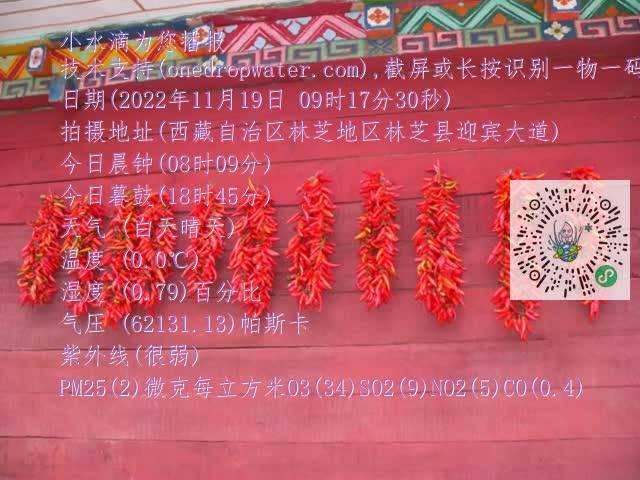 小水滴为您播报
技术支持(onedropwater.com),截屏或长按识别一物一码
日期(2022年11月19日 09时17分30秒)
拍摄地址(西藏自治区林芝地区林芝县迎宾大道)
今日晨钟(08时09分)
今日暮鼓(18时45分)
天气 (白天晴天)
温度 (0.0℃)
湿度 (0.79)百分比
气压 (62131.13)帕斯卡
紫外线(很弱)
PM25(2)微克每立方米O3(34)SO2(9)NO2(5)CO(0.4)